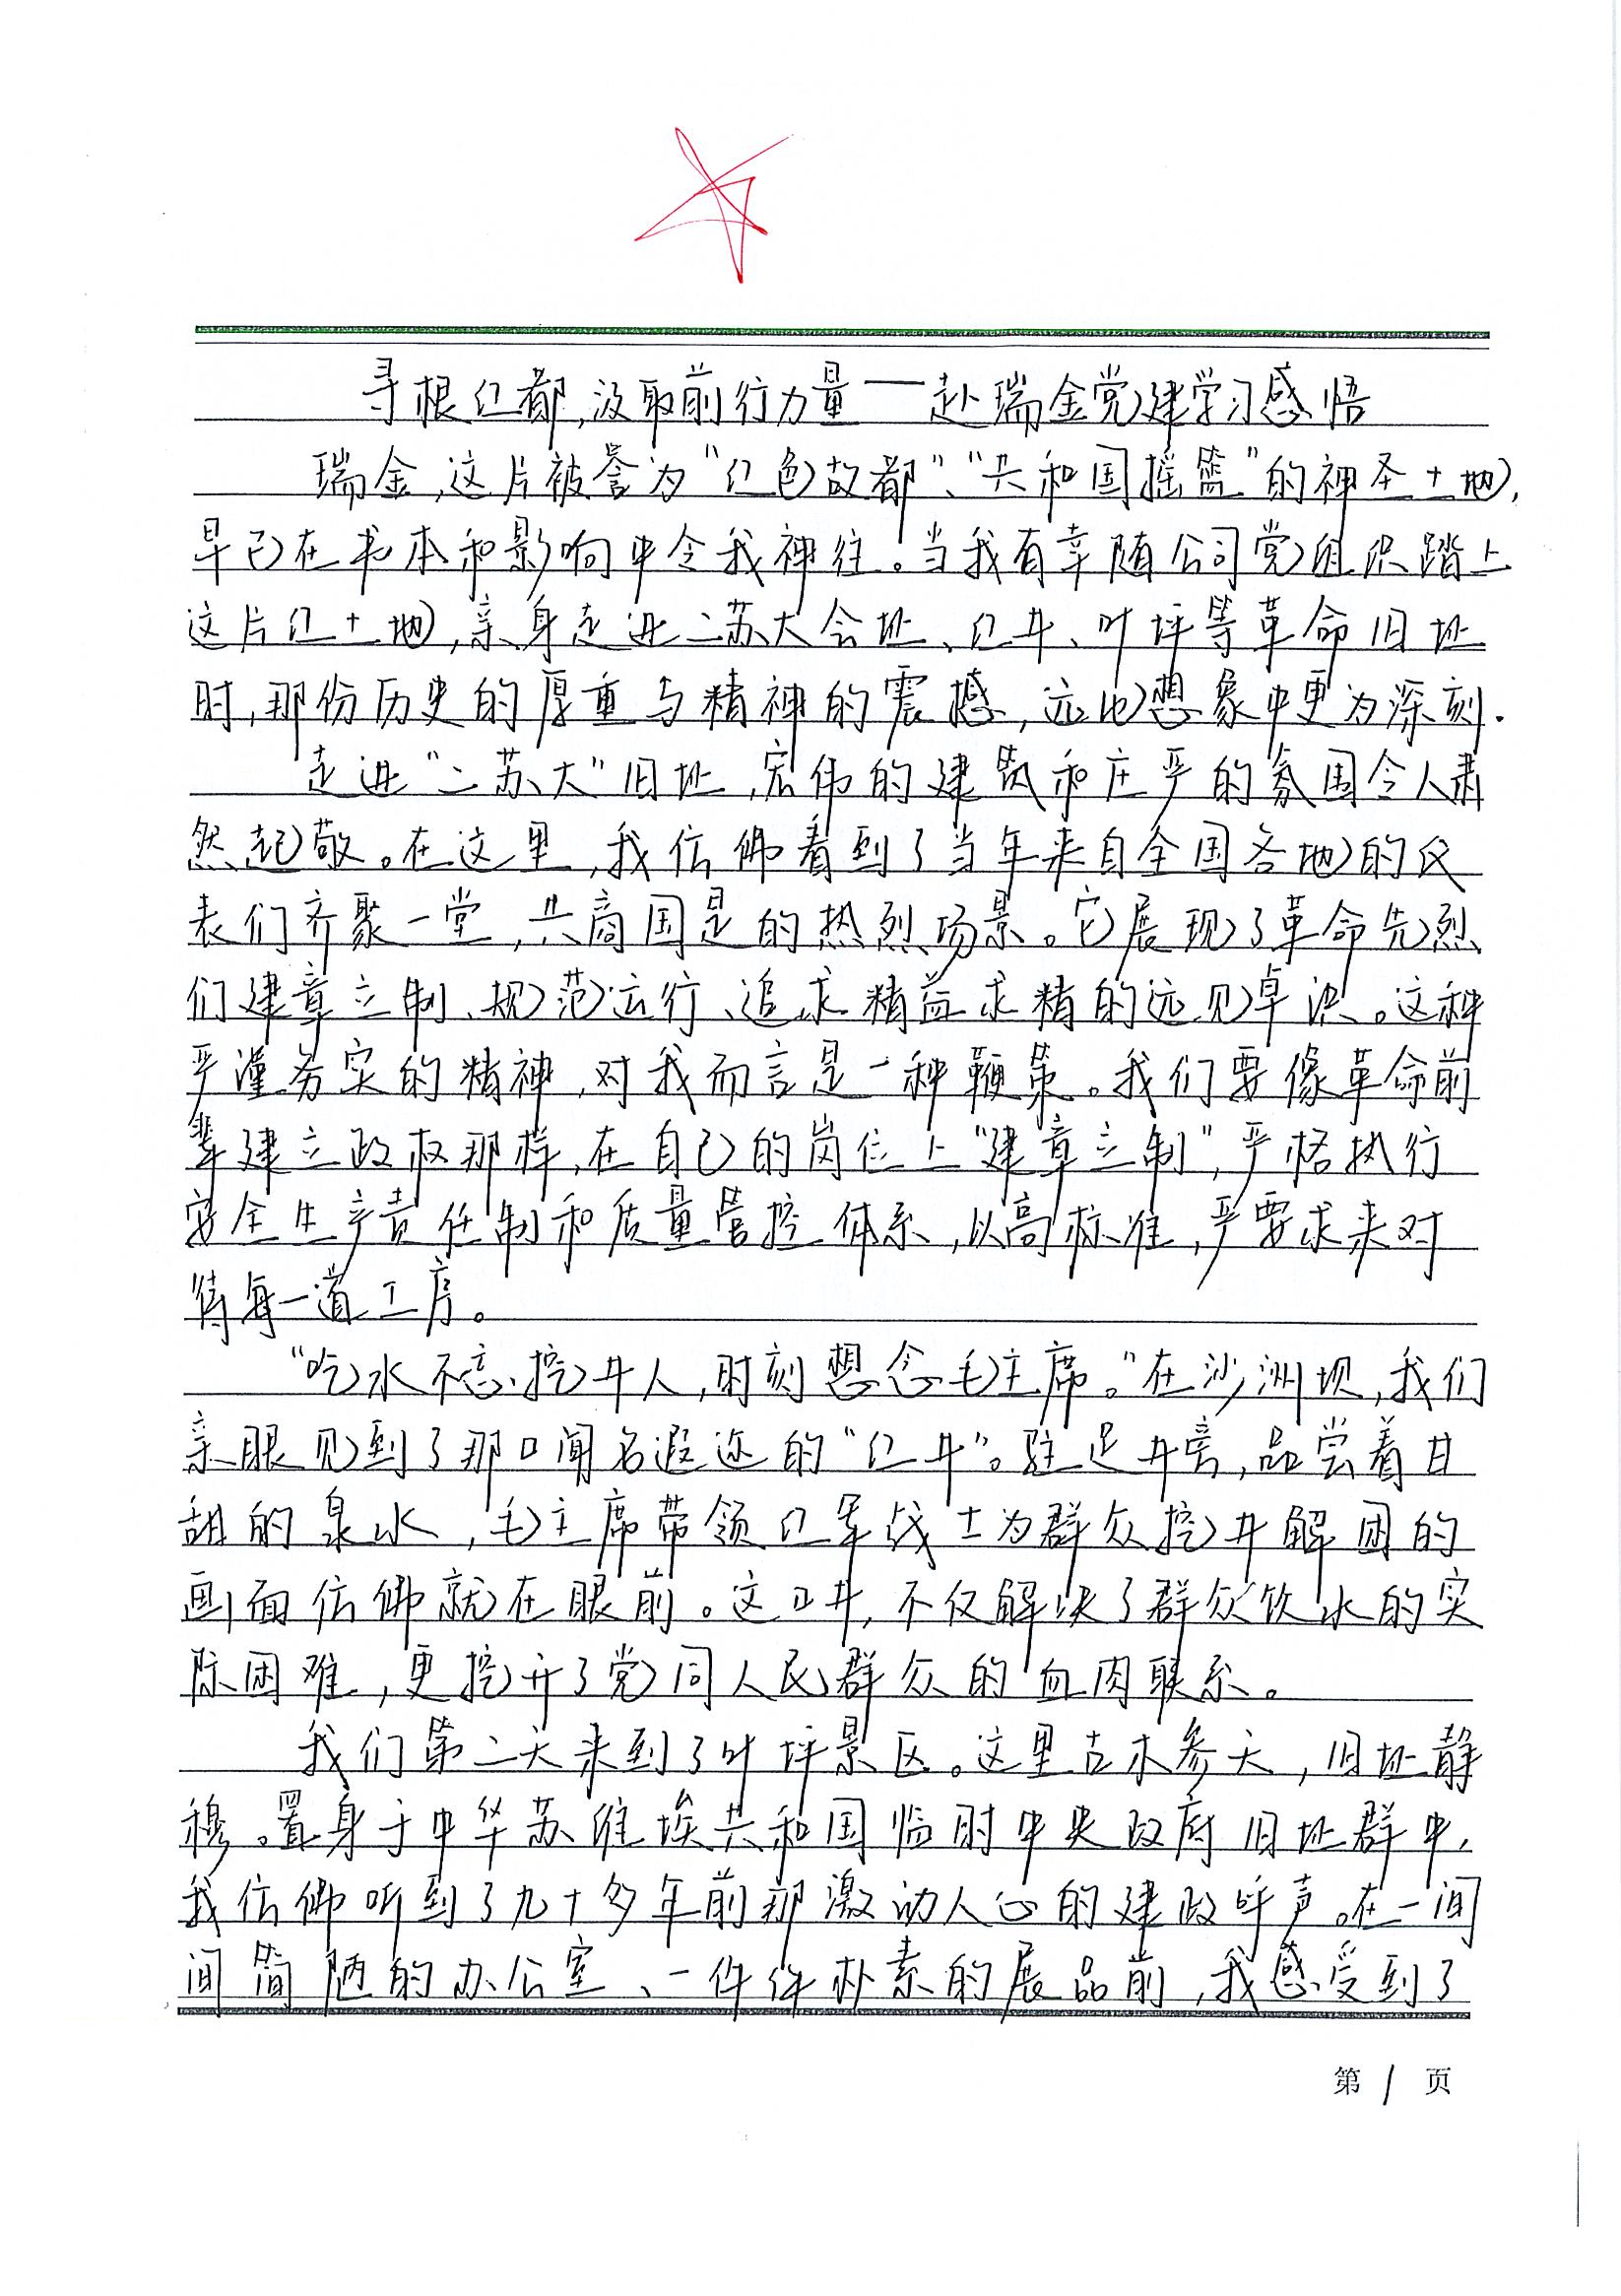 寻根红都,汲取前行力量——赴瑞金党建学习感悟
瑞金,这片被誉为“红色故都”、“共和国摇篮”的神圣土地,
早已在书本和影响中令我神往。当我有幸随公司党组织踏上
这片红土地,亲身走进二苏大会址、红井、叶坪等革命旧址
时,那份历史的厚重与精神的震撼,远比想象中更为深刻.
走进“二苏大”旧址,宏伟的建筑和庄严的氛围令人肃
然起敬。在这里,我仿佛看到了当年来自全国各地的代
表们齐聚一堂,共商国是的热烈场景。它展现了革命先烈
们建章立制、规范运行、追求精益求精的远见卓识。这种
严谨务实的精神,对我而言是一种鞭策。我们要像革命前
辈建立政权那样,在自己的岗位上“建章立制”,严格执行
安全生产责任制和质量管控体系,以高标准,严要求来对
待每一道工序。
“吃水不忘挖井人,时刻想念毛主席。”在沙洲坝,我们
亲眼见到了那口闻名遐迩的“红井”。驻足井旁,品尝着甘
甜的泉水,毛主席带领红军战士为群众挖井解困的
画面仿佛就在眼前。这口井,不仅解决了群众饮水的实
际困难,更挖开了党同人民群众的血肉联系。
我们第二天来到了叶坪景区。这里古木参天,旧址静
穆。置身于中华苏维埃共和国临时中央政府旧址群中,
我仿佛听到了九十多年前那激动人心的建政呼声。在一间
间简陋的办公室、一件件朴素的展品前,我感受到了
第1页